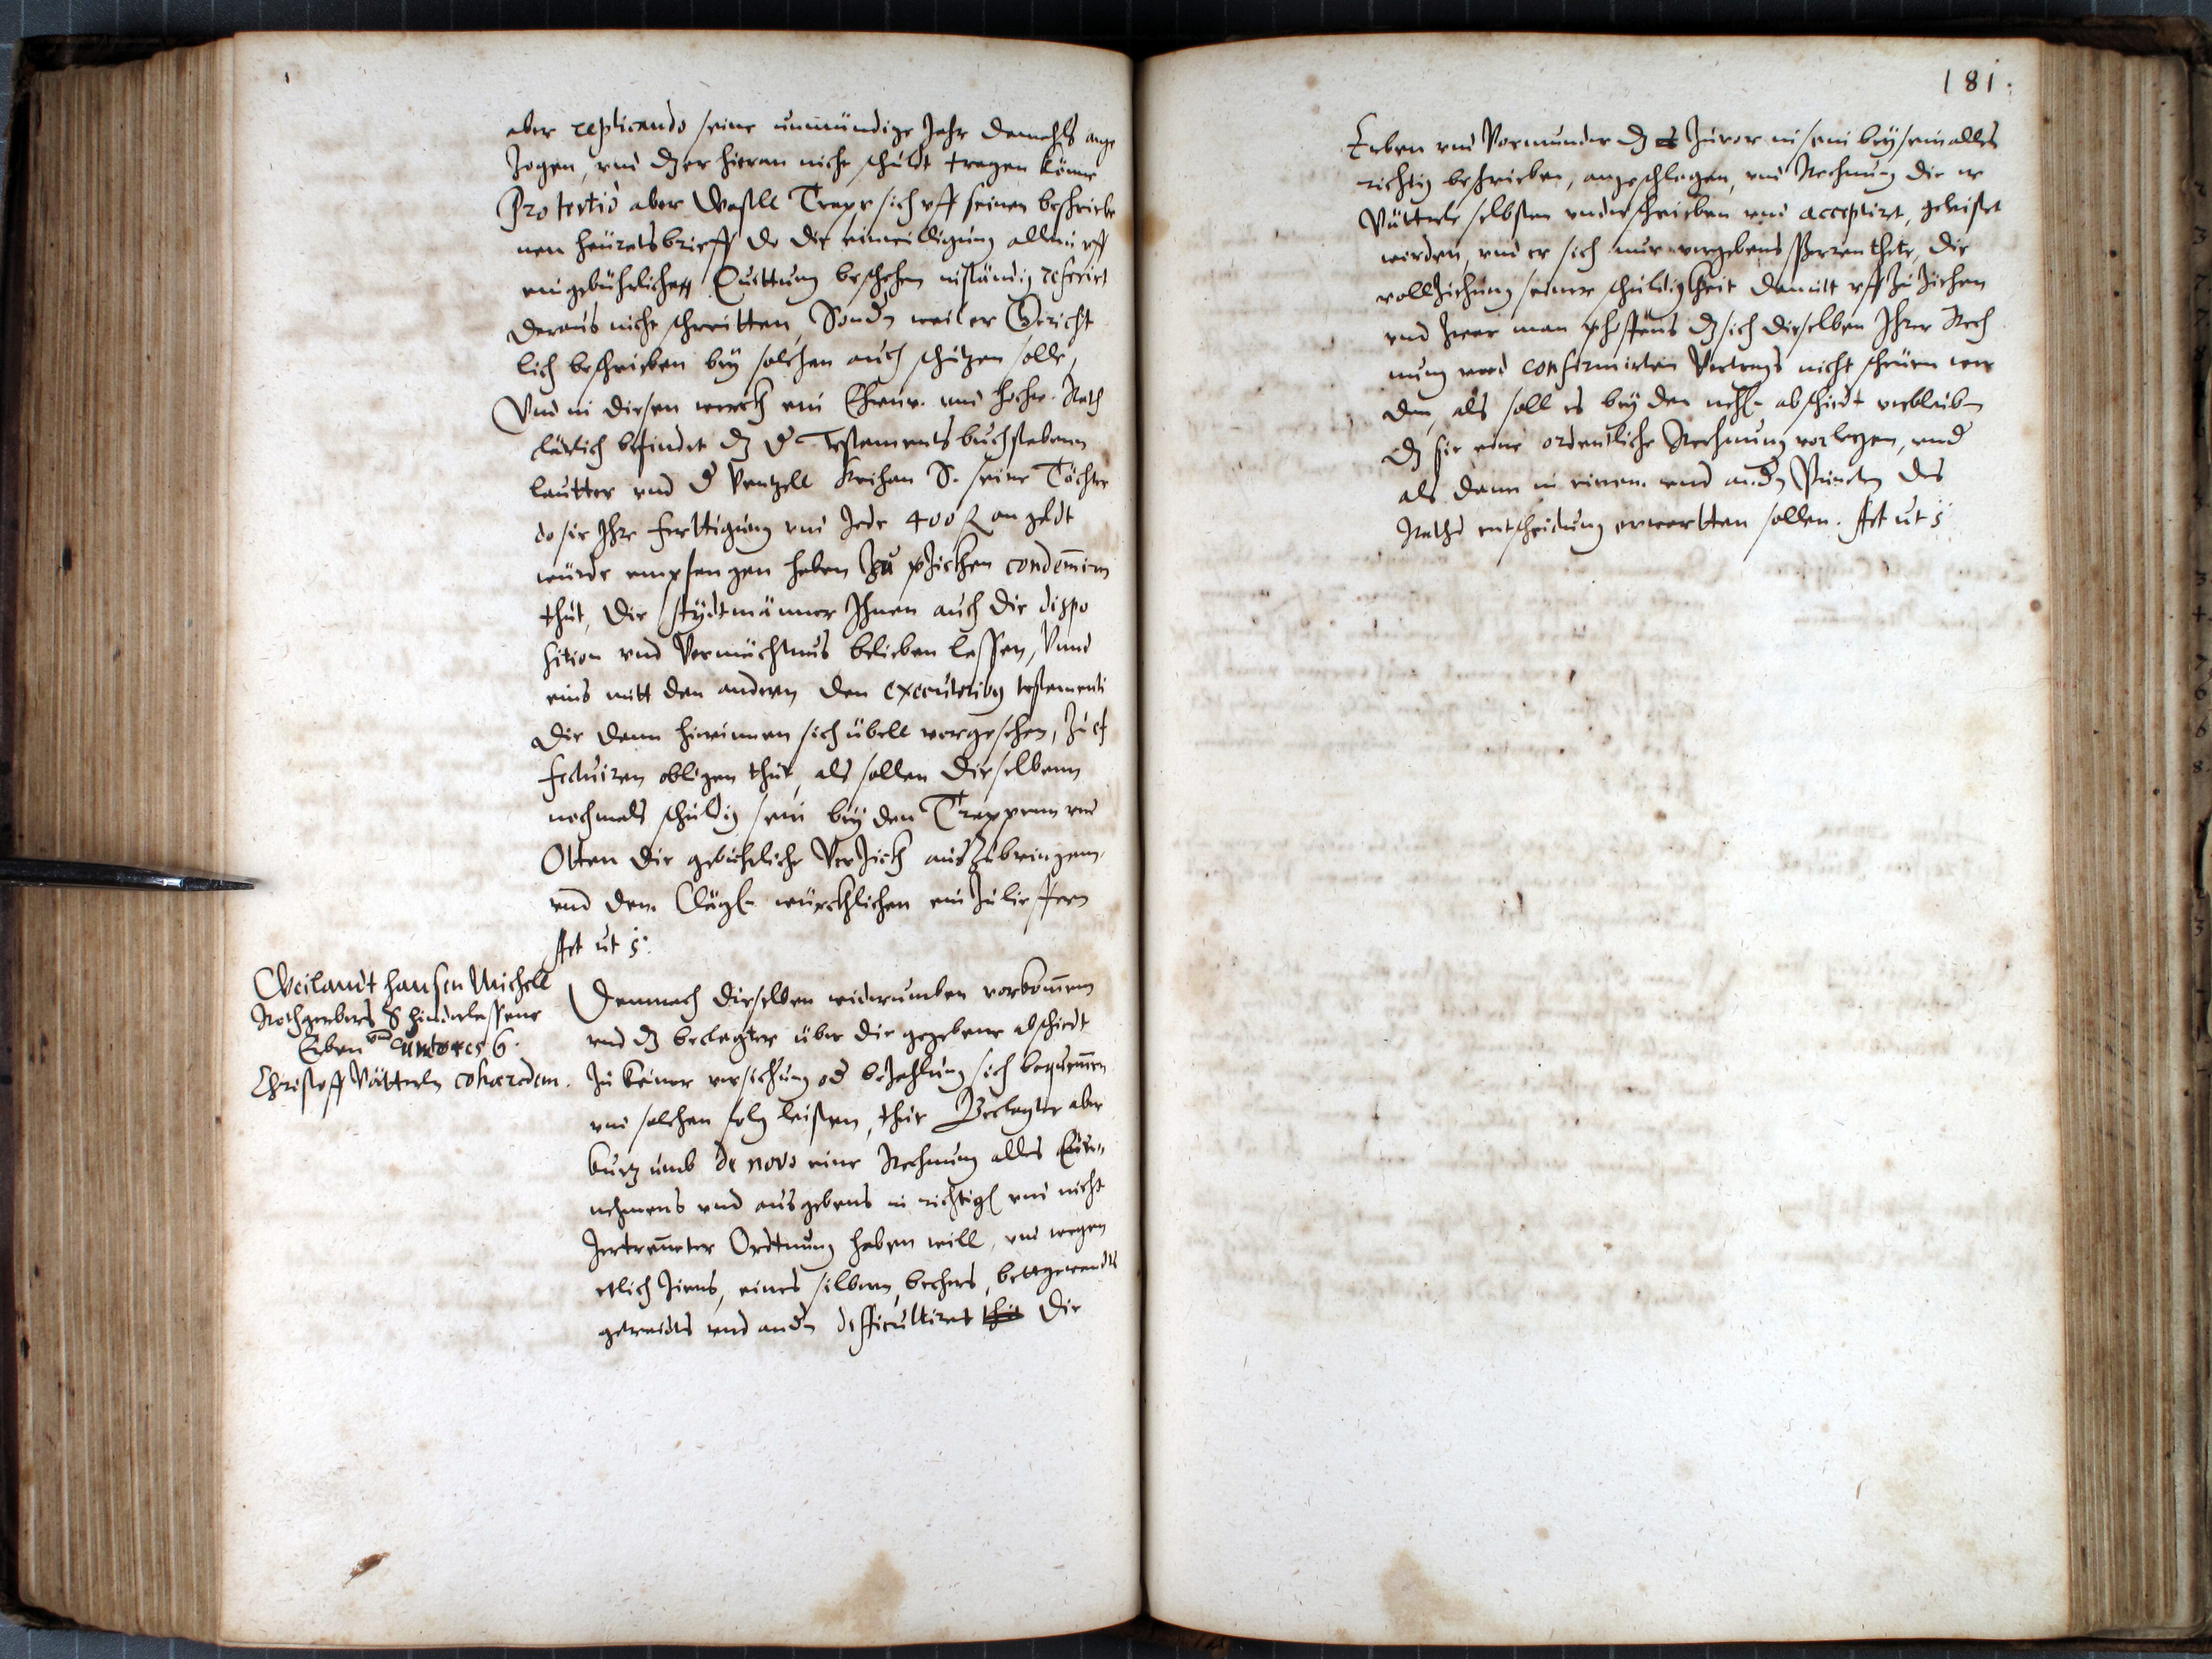 aber replicando seine unmündige Jahr damahls ange
zogen, und dz er hieran nicht schuldt tragen könne
Protestio aber Trapp sich uff seinen beschriebe
nen heüratsbrieff da die einwilligung allein uff
eingebührliche Quittung beschehen inständig referirt
daraus nicht schreitten, Sondn weil er Gericht
lich beschrieben bey solchen auch schützen solle,
Und in diesen werck ein Ehrnv. und hochw. Rath
clärlich befindet dz d Testaments buchstabenn
lautter und d Wentzell S. seine Töchter
do sie Ihre ferttigung und Jede 400 an geldt
würde empfangen haben zu condemnirn
thut, die Ihnen auch die dispo
sition und Vermächtnus belieben lassen, Unnd
eins mitt den andern den executoribus testamenti
die dann hierinnen sich übell vorgesehen, zu ef
fectuiren obligen thut, als sollen dieselbenn
nochmals schuldig sein bey den Trappenn und
Otten die gebührliche Verzicht auszubringenn
und dem Clägern würcklichen ein zulieffern
Act ut s:
Weilandt Hansen Michell
Rothgerbers S hinderlassene
Erben und Curtores C.
Christoff Vätterln cohæredem.
Demnach dieselben widerumben vorkommen
und dz beclagter über die gegebene abschiedt
zu keiner versichrung od bezahlung sich bequemen
und solchen folg leisten, thue Beclagter aber
kurtz umb de novo eine Rechnung alles Ein-
nehmens und ausgebens in richtigl und nicht
zertrenneter Ordtnung haben will, und wegen
etlich Ziens, eines silbern bechers, bettgewandts
getreidts und andn difficultiret thut die
181.
Erben und Vormunder dz es zuvor in sein beysein alles
richtig beschrieben, angeschlagen, und Rechnung die er
Vätterle selbsten underschrieben und acceptiret, geleistet
worden, und er sich nur vorgebens sperren thete, die
vollziehung seiner schuldigkeit damitt uff zu ziehen
und zwar man dz sich dieselben Ihrer Rech
nung und confirmirten Vertrags nicht scheuen wer
den, als soll es bey den abschiedt verbleiben
dz sie eine ordentliche Rechnung vorlegen, und
als dann in einem und andn Puncten des
Raths entscheidung erwartten sollen. Act ut s: